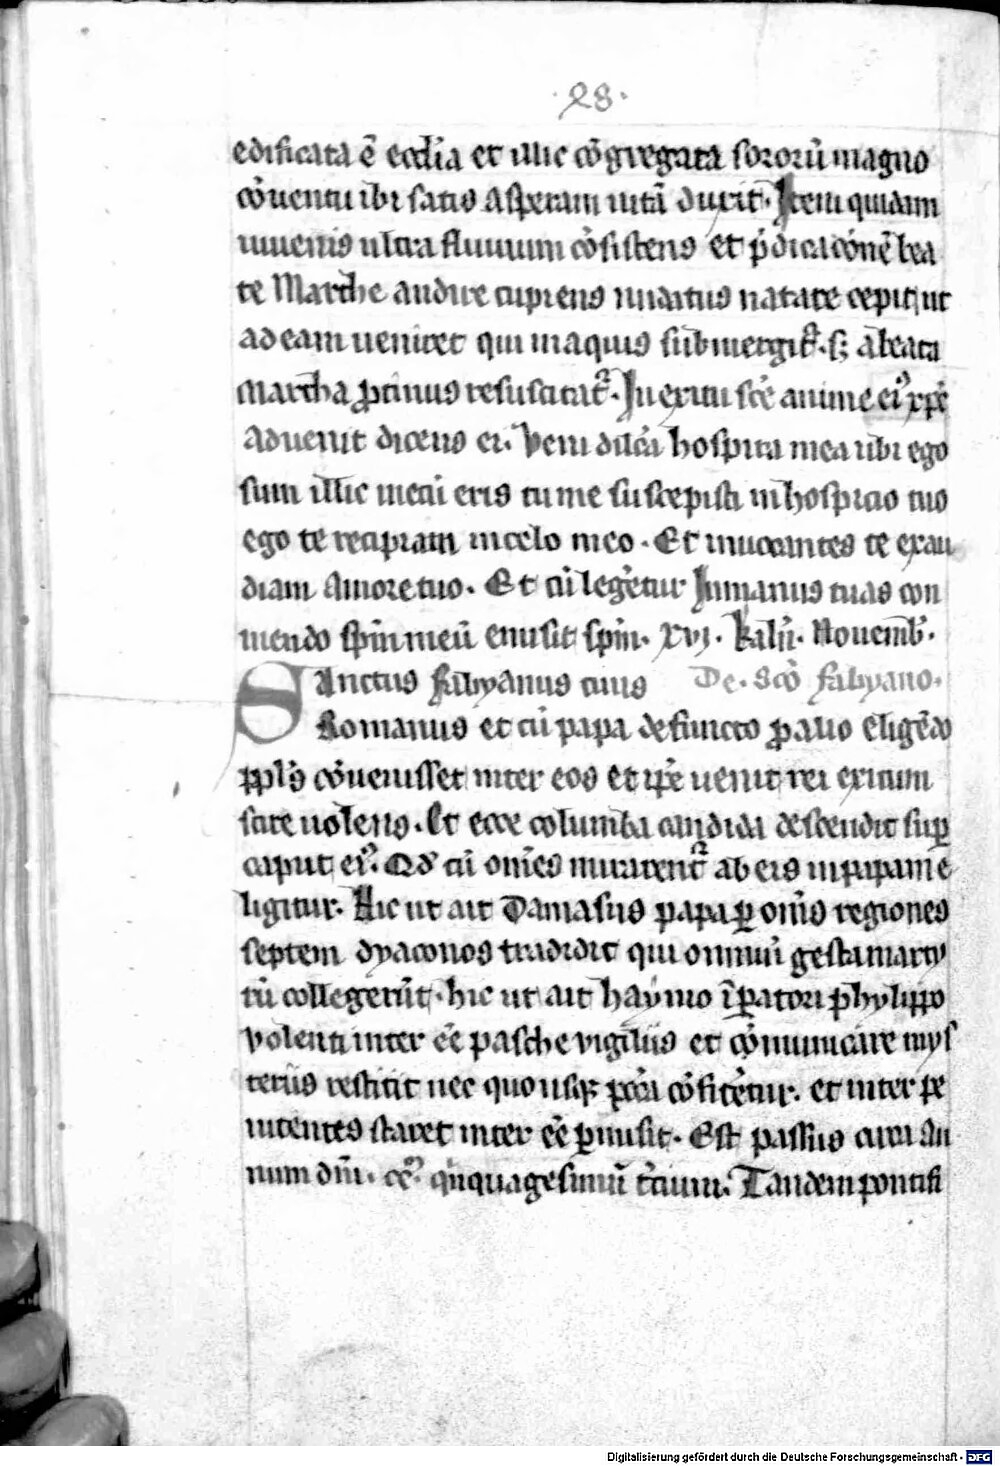 ·28·
edificata ē eccl̄ia et illic cōgregata sororū magno
cōuentu ibi satis asperam uitā duxit. Item quidam
iuuenis ultra fluuium cōsistens et p̄dicacōnē bea
te Marthe audire cupiens nudatus natare cepit ut
ad eam ueniret qui in aquis submergit᷑. sꝫ a beata
martha ꝓtinus resuscitat᷑. In exitu sc̄e anime eiꝰ xp̄c
aduenit dicens ei. Veni dilc̄a hospita mea ubi ego
sum illic mecū eris tu me suscepisti in hospicio tuo
ego te recipiam in celo meo. Et inuocantes te exau
diam amore tuo. Et cū leger̄etur In manus tuas con
mendo sp̄m meū emisit sp̄m. xvj. kal̄n. Nouemb̄.
Sanctus fabyanus ciuis De. Sc̄o fabyano.
Romanus et cū papa defuncto ꝓ alio eligēdo
ppl̄s cōuenisset inter eos et ip̄e uenit rei exitum
scire uolens. Et ecce columba candida descendit sup̄
caput eiꝰ. Qd̄ cū om̄es mirarent᷑ ab eis in papam e
ligitur. Hic ut ait Damasus papa ꝑ om̄s regiones
septem dyaconos tradidit qui omniū gesta marty
rū collegerūt. hic ut ait haymo īꝑatori phylippo
volenti inter eē pasche vigiliis et cōmunicare mys
teriis restitit nec quo usqꝫ pcc̄a cōfiter̄etur. et inter pe
nitentes staret inter eē ꝑmisit. Est passus circa an
num dm̄. ccꝰ. qīnquagesimū t̄cium. Tandem pontifi
Digitalisierung gefördert durch die Deutsche Forschungsgemeinschaft - DFG